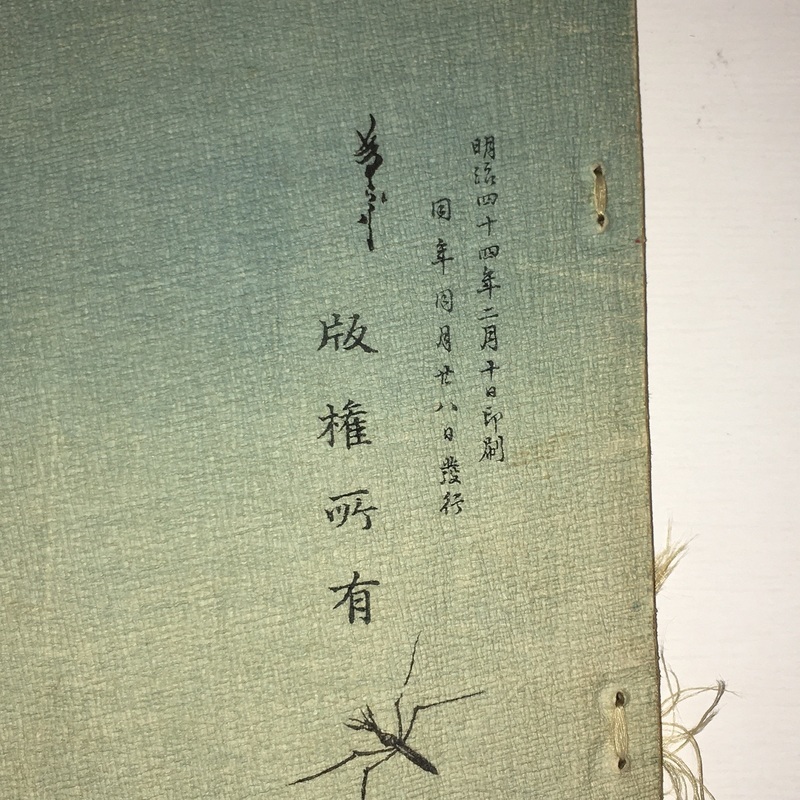 明治四十四年二月十日印刷
同年同月廿八日發行
版權所有